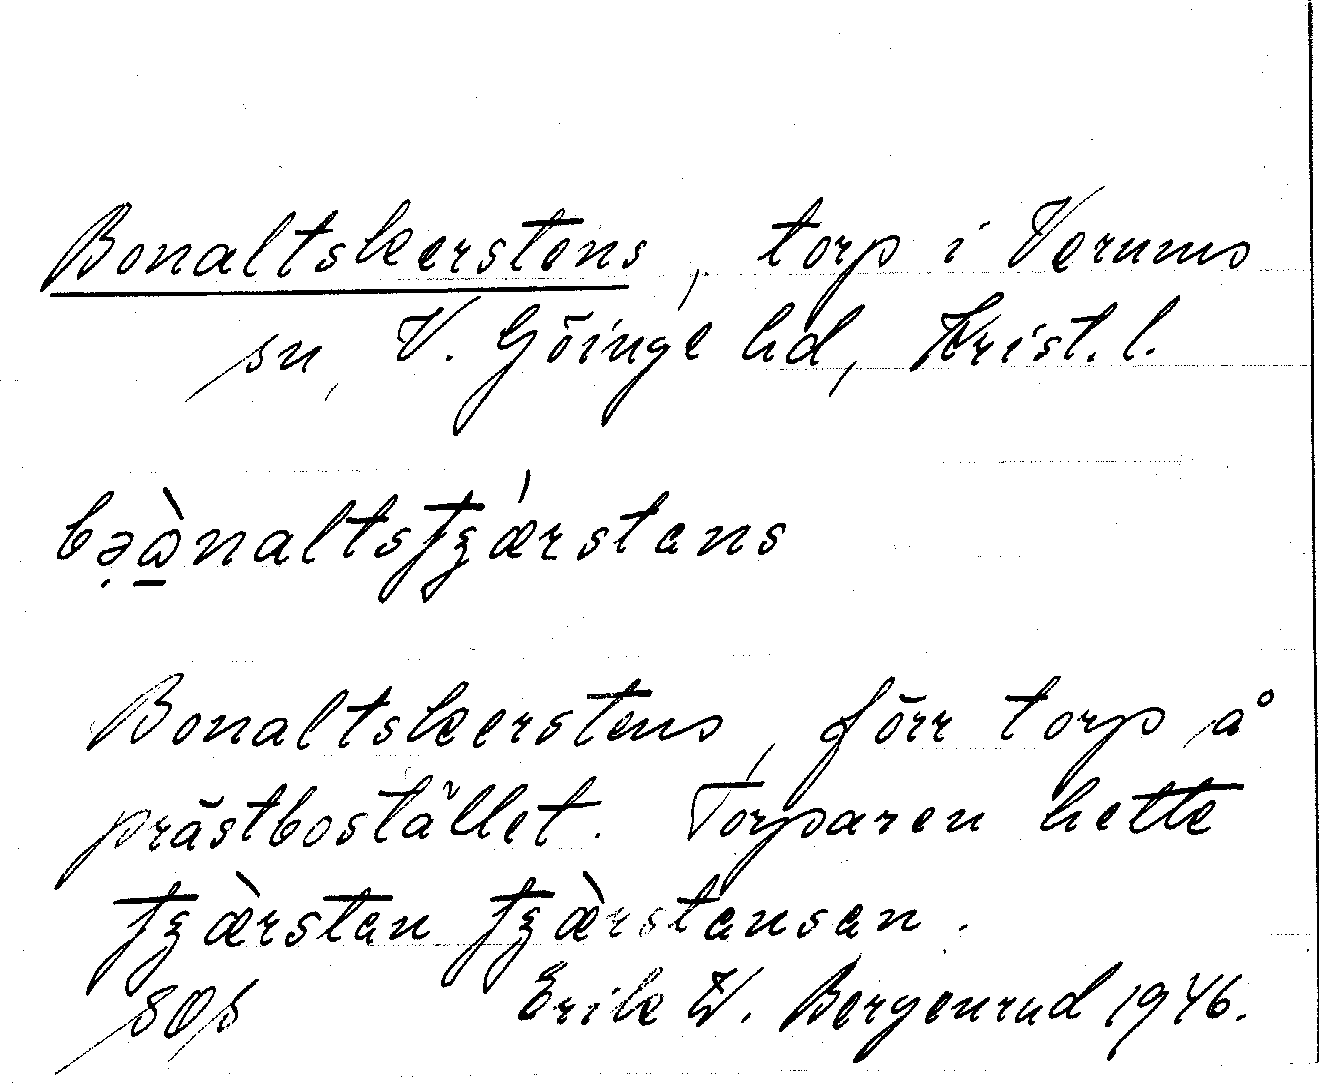 Bonaltskerstens, torp i Verums
sn, V. Göinge hd, Krist. l.
bə̣ὰ̱naltsƫʓǽrstans
Bonaltskerstens, förr torp å
prästbostället. Torparen hette
ƫʓæ̀rstan ƫʓæ̀rstansan.
SOS Erik W. Bergenrud 1946.